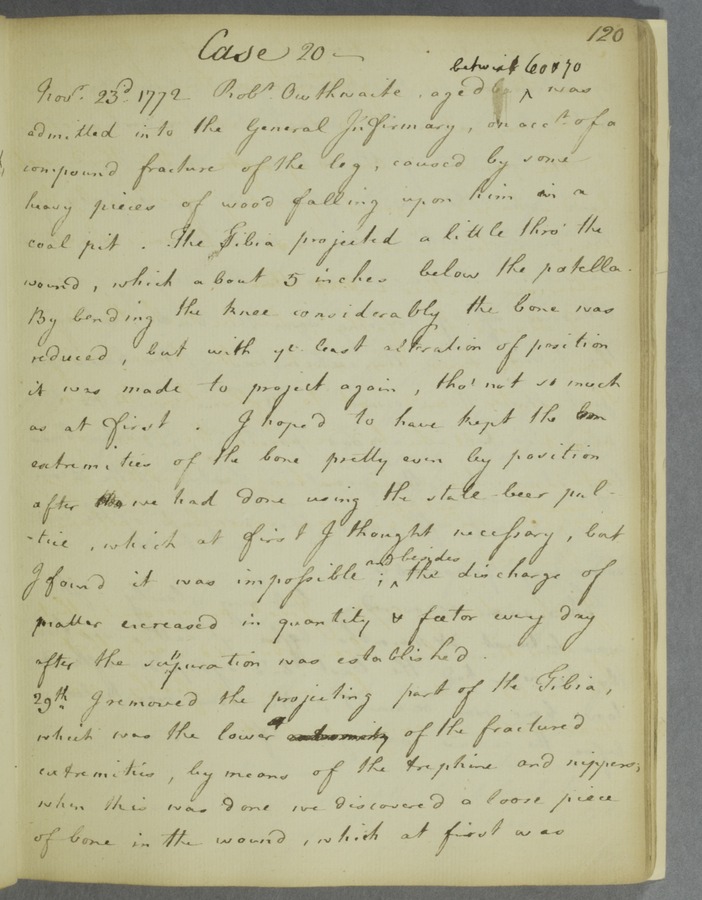 120
Case 20
betwixt 60 & 70
Novr. 23d. 1772 Robt. Outhwaite aged ^ was
admitted into the General Infirmary, on acct. of a
compound fracture of the leg, caused by some
heavy pieces of wood falling upon him in a
coal pit. The Tibia projected a little thro' the
wound, which about 5 inches below the patella.
By bending the knee considerably the bone was
reduced, but with ye. least alteration of position
it was made to project again, tho' not so much
as at first. I hoped to have kept the
extremities of the bone pretty even by position
after we had done using the stale-beer pul-
-tice, which at first I thought necessary, but
I found it was impossible; ^ and besides the discharge of
matter encreased in quantity & fœtor every day
after the suppuration was established.
29th I removed the projecting part of the Tibia,
which was the lower of the fractured
extremities, by means of the trephine and nippers;
when this was done we discovered a loose piece
of bone in the wound, which at first was